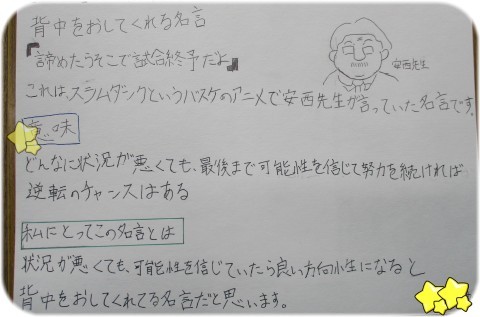 背中をおしてくれる名言
『諦めたらそこで試合終予だよ』
安西先生
これは、スラムダンクというバスケのアニメで安西先生が言っていた名言です。
意味
どんなに状況が悪くても、最後まで可能性を信じて努力を続ければ
逆転のチャンスはある
私にとってこの名言とは
状況が悪くても、可能性を信じていたら良い方向性になると
背中をおしてくれてる名言だと思います。